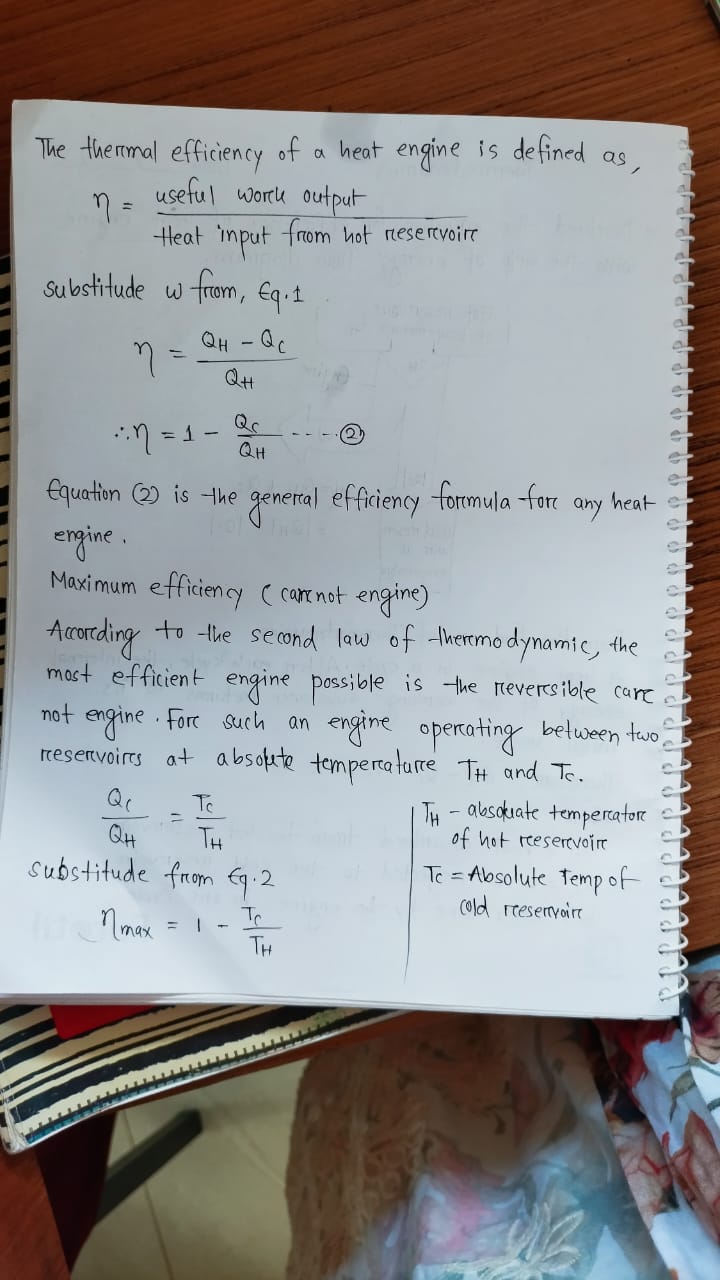 The thermal efficiency of a heat engine is defined as,
η = useful work output / Heat input from hot reservoir
substitude w from, Eq.1
η = QH - QC / QH
∴η = 1 - QC / QH ----- ②
Equation ② is the general efficiency formula for any heat
engine.
Maximum efficiency (carnot engine)
According to the second law of thermodynamic, the
most efficient engine possible is the reversible car
not engine. For such an engine operating between two
reservoirs at absolute temperature TH and TC.
QC / QH = TC / TH
substitude from Eq.2
ηmax = 1 - TC / TH
TH - absoluate temperatore
of hot reeservoir
TC = Absolute Temp of
cold reeservoir